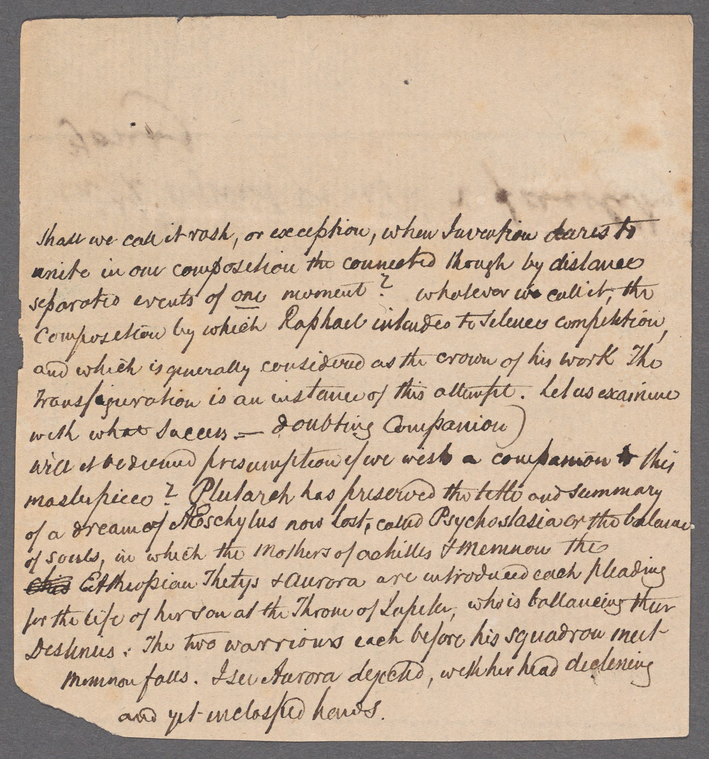 Shall we call it rash, or exception, when Invention dares to
unite in one composition the connected though by distance
separated events of one moment? whatever we call it, the
Composition by which Raphael intendes to Silence competition,
and which is generally considered as the crown of his work The
Transfigueration is an instance of this attempt. Let us examine
with what Success — doubting Companion)
will it be deemed presumption if we wish a companion to this
masterpiece? Plutarch has preserved the title and summary
of a dream of Æschylus now lost, called Psychostasia or the balance
of souls, in which the Mothers of achilles & Memnon the
Etheopian Thetys & Aurora are introduced each pleading
for the life of her son at the Throne of Jupiter, who is ballancing their
Destinies: The two warriours each before his squadron meet
Memnon falls. I see Aurora dejected, with her head declening
and yet inclasped hands.